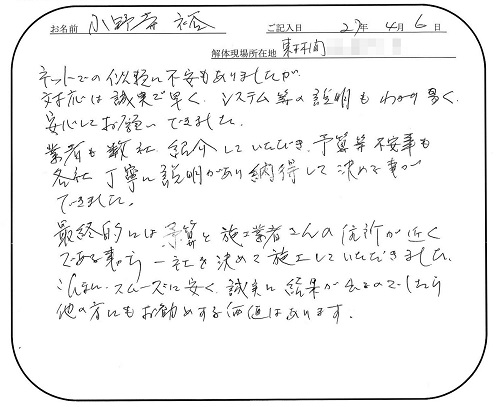 お名前 小野寺 裕 ご記入日 27年 4月 6日
解体現場所在地 東京都
ネットでの依頼に不安もありましたが
対応は誠実で早く、システム等の説明もわかり易く、
安心してお願いできました。
業者も数社、紹介していただき、予算等不安事も
各社丁寧に説明があり納得して決めて事が
できました。
最終的には予算と施工業者さんの住所が近く
である事から一社を決めて施工していただきました。
こんなに、スムーズに安く、誠実に結果が出るのでしたら
他の方にもお勧めする価値はあります。